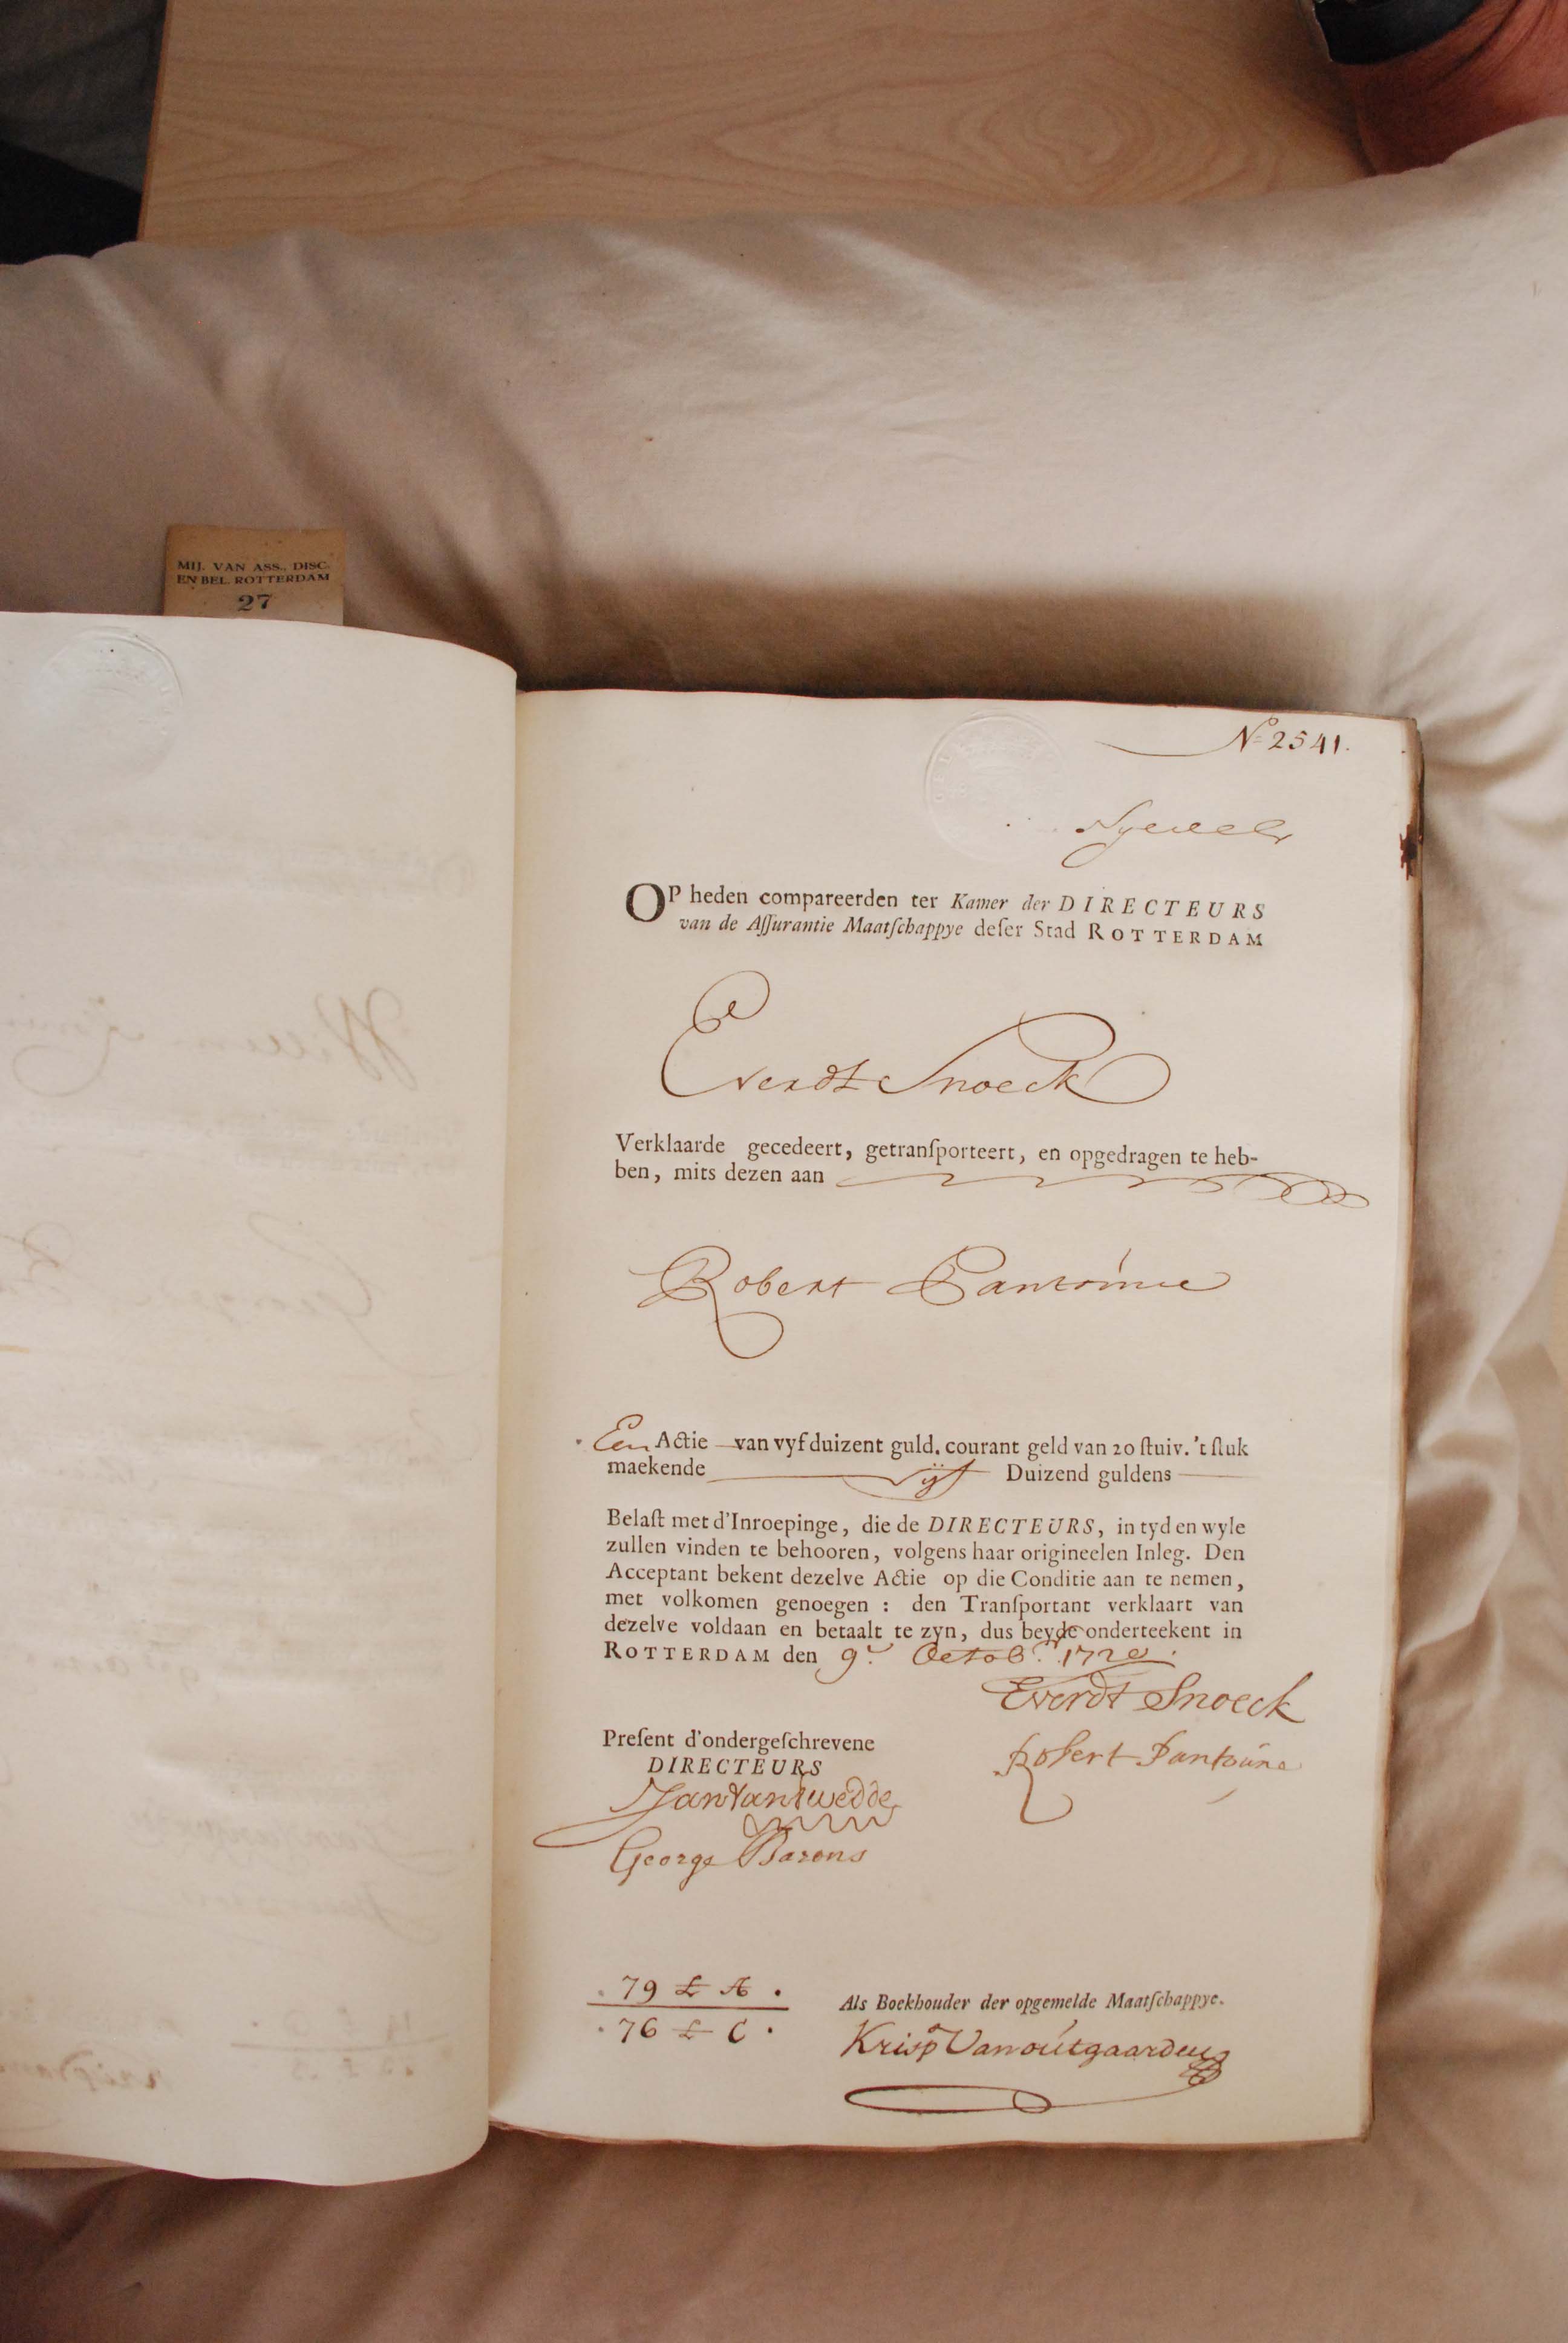 MIJ. VAN ASS., DISC.
EN BEL. ROTTERDAM
27
No 2541.
OP heden compareerden ter Kamer der DIRECTEURS
van de Aſſurantie Maatſchappye deſer Stad ROTTERDAM
Everdt Snoeck
Verklaarde gecedeert, getranſporteert, en opgedragen te heb-
ben, mits dezen aan
Robert
Een Actie van vyf duizent guld. courant geld van 20 ſtuiv. 't ſtuk
maekende Vijf Duizend guldens
Belaſt met d'Inroepinge, die de DIRECTEURS, in tyd en wyle
zullen vinden te behooren, volgens haar origineelen Inleg. Den
Acceptant bekent dezelve Actie op die Conditie aan te nemen,
met volkomen genoegen : den Tranſportant verklaart van
dezelve voldaan en betaalt te zyn, dus beyde onderteekent in
ROTTERDAM den 9e Octobr. 1720.
Everdt Snoeck
Preſent d'ondergeſchrevene
DIRECTEURS
Robert
George Barons
79 £ A.
76 £ C.
Als Boekhouder der opgemelde Maatſchappye.
Krisp Van outgaarden